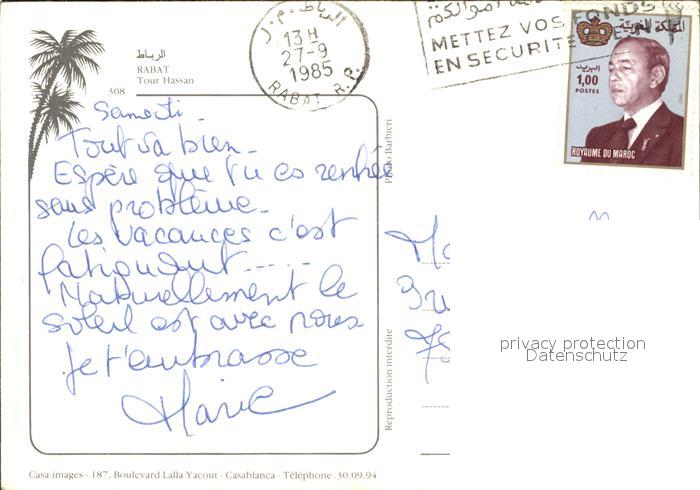 الرباط
RABAT
Tour Hassan
308
الرباط
13 H
27-9
1985
RABAT R.P.
METTEZ VOS FONDS
EN SECURITE
المملكة المغربية
البريد
1,00
POSTES
ROYAUME DU MAROC
Samedi.
Tout va bien.
Espère que tu es rentrée
sans problème.
Les vacances c'est
fatiguant.....
Naturellement le
soleil est avec nous
Je t'embrasse
Marie
Photo Barbieri
Reproduction interdite
privacy protection
Datenschutz
Casa-images - 187, Boulevard Lalla Yacout - Casablanca - Téléphone 30.09.94